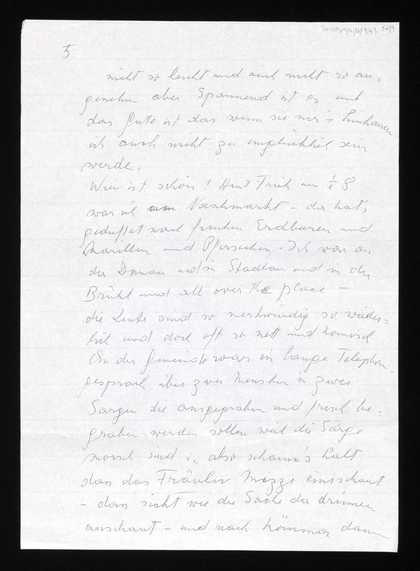 5
nicht so leicht und auch nicht so an-
genehm aber Spannend ist es und
das gute ist das wenn sie mir's
ich auch nicht zu empfindlich sein
werde.
Wien ist schön! Heut Früh um 1/2 8
war ich am Naschmarkt - da hat's
geduftet nach frischen Erdbeeren und
Marillen und Pfirsichen. Ich war an
der Donau und in Stadlau und in der
Brühl und all over the place -
die Leute sind so merkwürdig so wieder-
lich und doch oft so nett und komisch
(In der gemeinde war ein langes Telephon-
gespräch über zwei Menschen in zwei
Särgen die ausgegraben und frisch be-
graben werden sollen weil die Särge
morsch sind, also schaun's halt
dass das Fräulein einischaut
- dann sicht wie die Sach da drinnen
ausschaut - und nach können dann